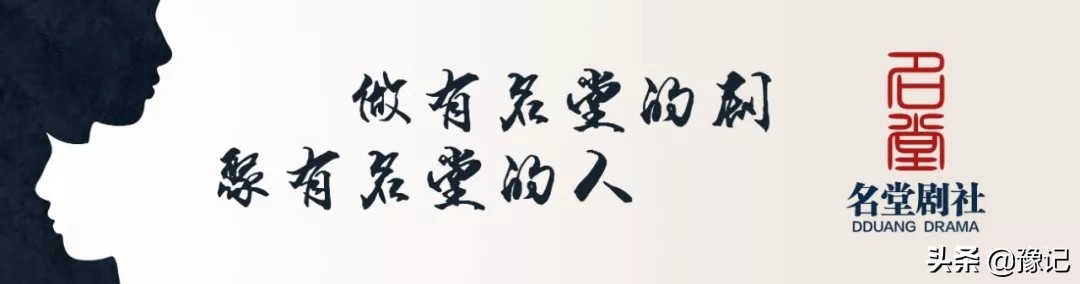 做有名堂的剧
聚有名堂的人
名堂
名堂剧社
DDUANG DRAMA
头条 @豫记